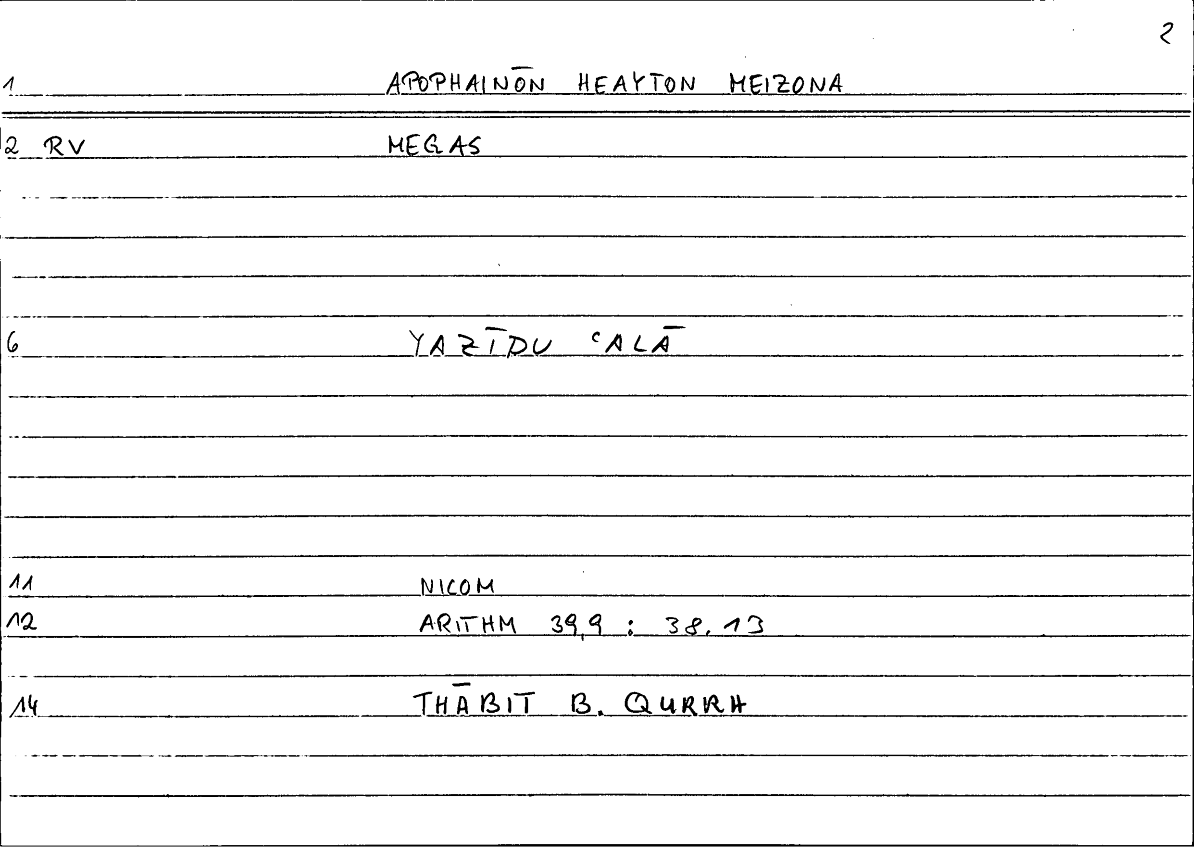 2
1 APOPHAINŌN HEAYTON MEIZONA
2 RV MEGAS
6 YAZĪDU ʿALĀ
11 NICOM
12 ARITHM 39,9 : 38.13
14 THĀBIT B. QURRH